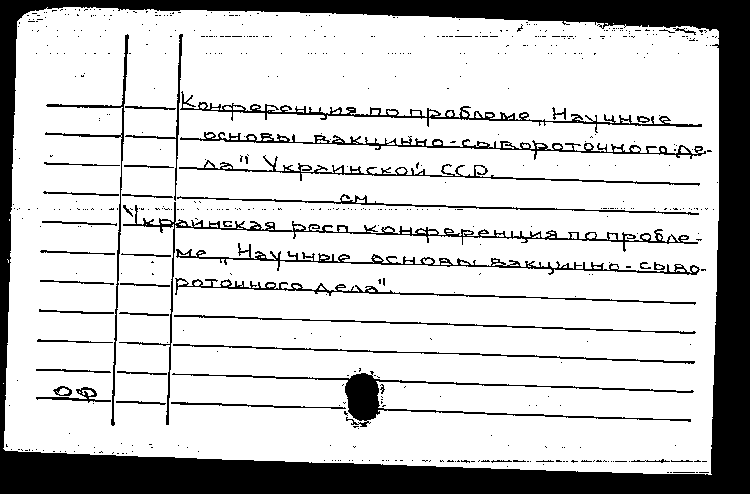 Конференция по проблеме „Научные
основы вакцинно-сывороточного де-
ла" Украинской ССР.
см.
Украинская респ. конференция по пробле-
ме „Научные основы вакцинно-сыво-
роточного дела".
ОФ